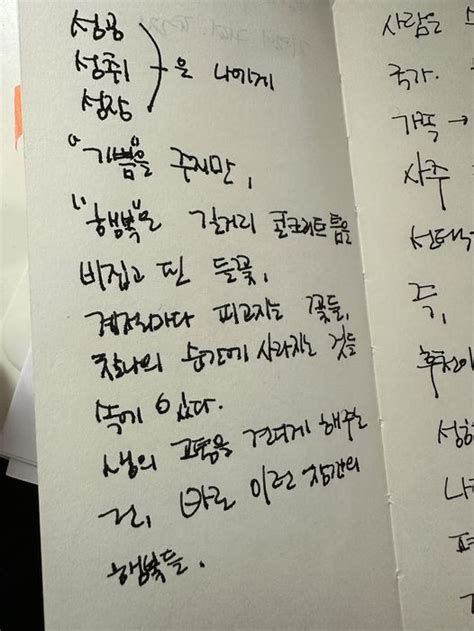 성공
성취 ─ 을 나에게
성장
"기쁨"을 주지만,
"행복"은 길거리 콘크리트 틈을
비집고 핀 들꽃,
계절마다 피고지는 꽃들,
찰나의 순간에 사라지는 것들
속에 있다.
생의 고통을 견디게 해주는
건, 바로 이런 장간의
행복들.
사람을
국가.
가족 →
사주
선택
즉,
후천이
성향
나